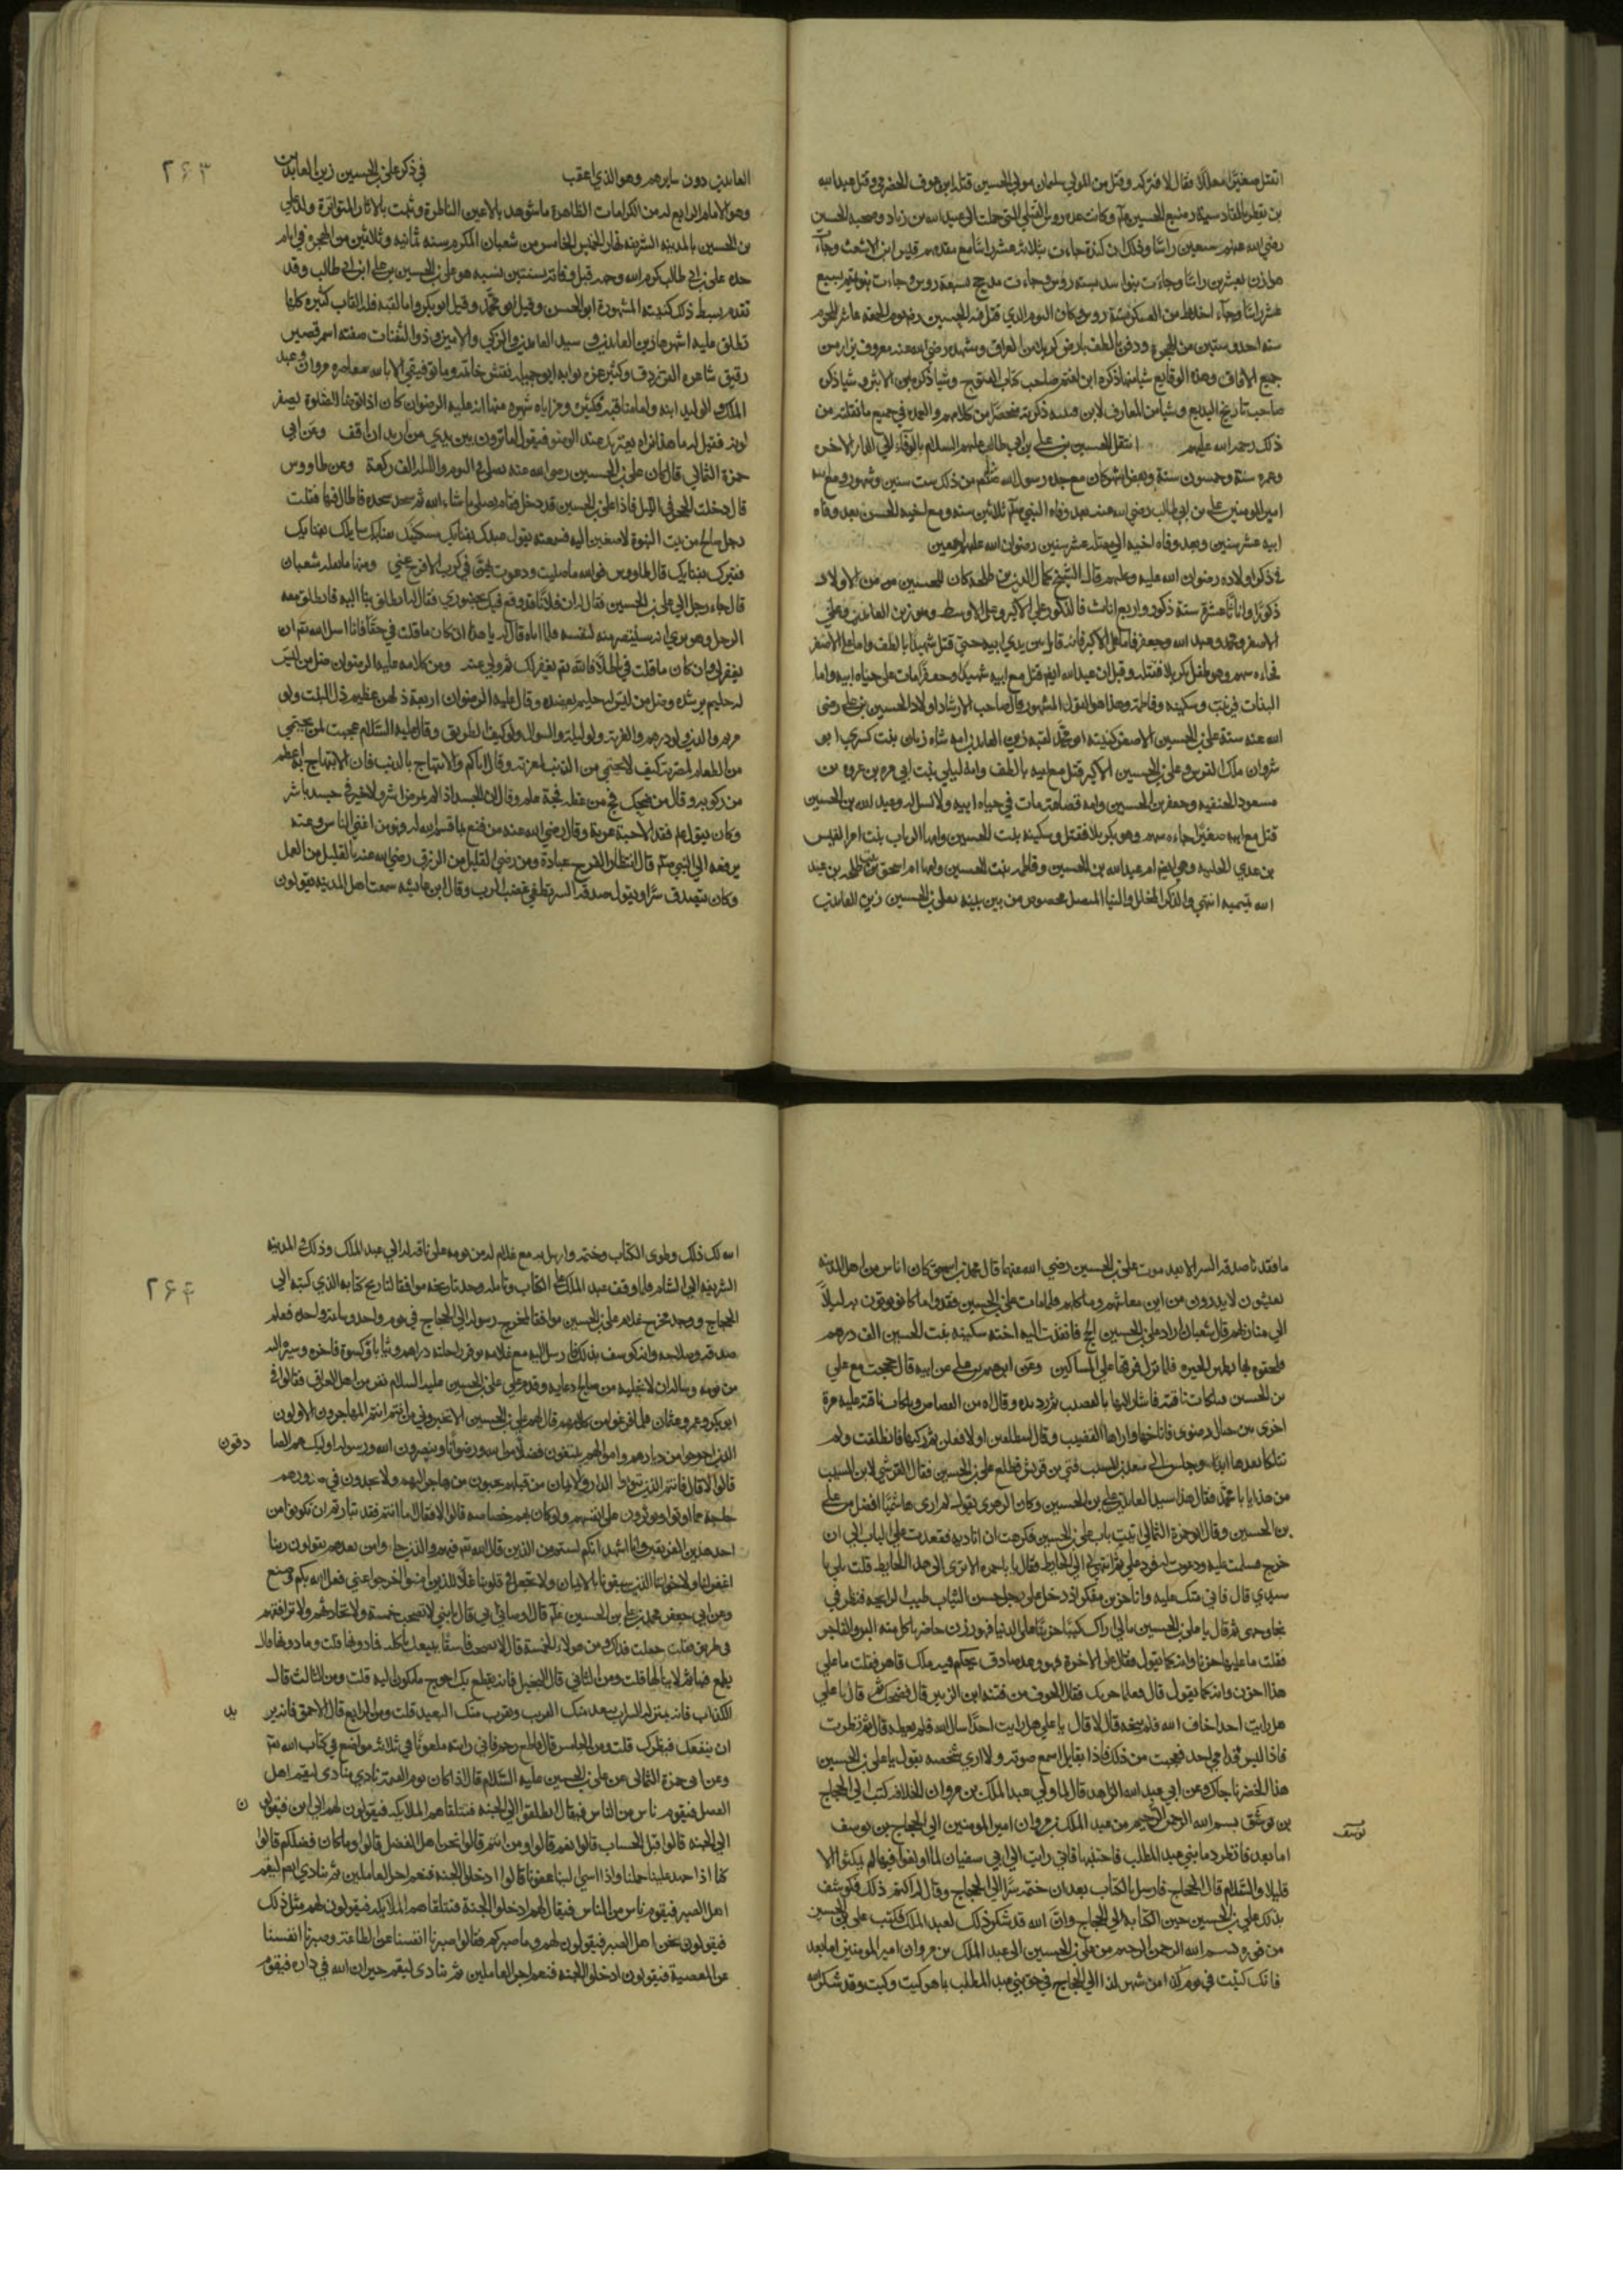 اتقتل صغيرا معللا فقال لا فتركه وقتل من الموالي سليمان مولى الحسين قتله ابن عوف الحضرمي وقتل عبد الله
بن بقطر رضيع الحسين
رضي الله عنهم سبعين راسا وفدك ان كندة جاءت بثلاثة عشر راسا مع مقدمهم قيس ابن الاشعث وجاءت
هوازن بعشرين راسا وجاءت بنوا اسد بستة روس وجاءت مذحج بسبعة روس وجاءت بنو تميم بسبع
عشر راسا وجاء اخلاط من العسكر روس وكان اليوم الذي قتل فيه الحسين يوم الجمعه عاشر المحرم
سنه احد وستين من الهجرة ودفن بالطف بارض كربلا من العراق ومشهده رضي الله عنه معروف يزار من
جميع الافاق وهذه الوقايع شيا منها ذكره ابن اعثم صاحب كتاب الفتوح وشيا ذكره ابن الاثير وشيا ذكره
صاحب تاريخ البديع وشيا من المعارف لابن قتيبه ذكرته مختصرا من كلامهم والعهده في جميع ما نقلته من
ذلك رحمه الله عليهم انتقل الحسين بن علي بن ابي طالب عليهم السلام بالوفاة الي الدار الاخره
وعمره ستة وخمسون سنة وبعض اشهر كان مع جده رسول الله صلعم من ذلك ست سنين وشهور ومع ابيه
امير المومنين علي بن ابي طالب رضي الله عنه بعد وفاه النبي صلعم ثلاثين سنه ومع اخيه الحسن بعد وفاه
ابيه عشر سنين وبعد وفاه اخيه الي مقتله عشر سنين رضوان الله عليهم اجمعين
في ذكر اولاده رضوان الله عليه وعليهم قال الشيخ كمال الدين بن طلحه كان للحسين من الاولاد
ذكورا واناثا عشرة ستة ذكور واربع اناث فالذكور علي الاكبر وعلي الاوسط وهو زين العابدين وعلي
الاصغر ومحمد وعبد الله وجعفر فاما علي الاكبر فانه قاتل بين يدي ابيه حتي قتل شهيدا بالطف واما علي الاصغر
فجاءه سهم وهو طفل بكربلا فقتله وقيل ان عبد الله ايضا قتل مع ابيه شهيدا وجعفر مات علي حياه ابيه واما
البنات فزينب وسكينه وفاطمة وهذا هو القول المشهور وقال صاحب الارشاد اولاد الحسين بن علي رضي
الله عنه ستة علي بن الحسين الاصغر كنيته ابو محمد لقبه زين العابدين امه شاه زنان بنت كسري ابو
شروان ملك الفرس وعلي بن الحسين الاكبر قتل مع ابيه بالطف وامه ليلي بنت ابي مره بن عروه بن
مسعود الثقفيه وجعفر بن الحسين وامه قضاعية مات في حياه ابيه ولا نسل له وعبد الله بن الحسين
قتل مع ابيه صغيرا جاءه سهم وهو بكربلا فقتل وسكينه بنت الحسين وامها الرباب بنت امرا القيس
بن عدي الكلبيه وهي ايضا ام عبد الله بن الحسين وفاطمه بنت الحسين وامها ام اسحق بنت طلحه بن عبيد
الله تيميه انتهي والذكر المخلد والثنا المتصل مخصوص من بين بنيه بعلي بن الحسين زين العابدين
٢٦٣
العابدين دون سايرهم وهو الذي اعقب في ذكر علي بن الحسين زين العابدين
وهو الامام الرابع له من الكرامات الظاهرة ما شوهد بالاعين الناظرة وثبت بالاثار المتواترة ولد علي
بن الحسين بالمدينه الشريفه نهار الخميس الخامس من شعبان المكرم سنه ثمانيه وثلاثين من الهجرة في ايام
جده علي بن ابي طالب كرم الله وجهه قبل وفاته بسنتين نسبه هو علي بن الحسين بن علي ابن ابي طالب وقد
تقدم بسط ذلك كنيته المشهورة ابو الحسن وقيل ابو محمد وقيل ابو بكر واما لقبه فله القاب كثيره كلها
تطلق عليه اشهرها زين العابدين وسيد العابدين والزكي والامين وذو الثفنات صفته اسمر قصير
رقيق شاعره الفرزدق وكثير عزه بوابه ابو جبله نقش خاتمه وما توفيقي الا بالله معاصره مروان وعبد
الملك والوليد ابنه واما مناقبه فكثيره ومزاياه شهيره منها انه عليه الرضوان كان اذا توضا للصلوة يصفر
لونه فقيل له ما هذا نراه يعتريك عند الوضو فيقول اما ترون بين يدي من اريد ان اقف وعن ابي
حمزة الثمالي قال كان علي بن الحسين رضي الله عنه يصلي في اليوم والليله الف ركعة وعن طاووس
قال دخلت الحجر في الليل فاذا علي بن الحسين قد دخل فقام يصلي ما شاء الله ثم سجد سجده فاطال فيها فقلت
رجل صالح من بيت النبوة لاصغين اليه فسمعته يقول عبدك بفنايك مسكينك بفنايك سايلك بفنايك
فقيرك بفنايك قال طاووس فوالله ما صليت ودعوت بهن في كرب الا فرج عني ومنها ما نقله شعبان
قال جاء رجل الي علي بن الحسين فقال له ان فلانا قد وقع فيك بحضوري فقال له انطلق بنا اليه فانطلق معه
الرجل وهو يري انه سينتصر منه لنفسه فلما اتاه قال له يا هذا ان كان ما قلت في حقا فانا اسل الله تع ان
يغفر لي وان كان ما قلت في باطلا فالله تع يغفر لك ثم ولي عنه ومن كلامه عليه الرضوان ضل من ليس
له حليم يرشده وضل من ليس له حليم يعضده وقال عليه الرضوان اربعة ذلهن عظيم ذل البنت ولو
مريم والدين ولو درهم والغربة ولو ليلة والسوال ولو كيف الطريق وقال عليه السلام عجبت لمن يحتمي
من الطعام لمضرته كيف لا يحتمي من الذنب لمعرته وقال اياكم والابتهاج بالذنب فان الابتهاج به اعظم
من ركوبه وقال من ضحك ضحكة مج من عقله مجة علم وقال ان الجسد اذا لم يمرض اشر ولا خير في جسد ياشر
وكان يقول عليم فقد الاحبة غربة وقال رضي الله عنه من قنع بما قسم الله له فهو من اغني الناس وعنه
يرفعه الي النبي صلعم قال انتظار الفرج عبادة ومن رضي القليل من الرزق رضي الله عنه بالقليل من العمل
وكان يتصدق سرا ويقول صدقة السر تطفي غضب الرب وقال ابن عايشه سمعت اهل المدينه يقولون
ما فقدنا صدقه السر الا بعد موت علي بن الحسين رضي الله عنهما قال محمد بن اسحق كان اناس من اهل المدينه
يعيشون لا يدرون من اين معاشهم وماكلهم فلما مات علي بن الحسين فقدوا ما كانوا يوتون به ليلا
الي منازلهم قال شعبان اراد علي بن الحسين الحج فانفذت اليه اخته سكينه بنت الحسين الف درهم
ولحقوه بها بظهر الحره فلما نزل فرقها علي المساكين وعن ابرهيم بن علي عن ابيه قال حججت مع علي
بن الحسين فتلكات ناقته فاشار اليها بالقضيب ثم رد يده وقال اه من القصاص وتلكات ناقته عليه مرة
اخري بين جبال رضوي فاناخها واراها القضيب وقال لتنطلقين او لافعلن ثم ركبها فانطلقت ولم
تتلكا بعدها ابدا وجلس الي سعيد بن المسيب فتي من قريش فطلع علي بن الحسين فقال القرشي لابن المسيب
من هذا يابا محمد فقال هذا سيد العابدين علي بن الحسين وكان الزهري يقول لم ار هاشميا افضل من علي
بن الحسين وقال ابو حمزة الثمالي اتيت باب علي بن الحسين فكرهت ان انادي فقعدت علي الباب الي ان
خرج فسلمت عليه ودعوت له فرد علي ثم انتهي بي الي الحايط فقال يا باحمزه الا تري الي هذا الحايط قلت بلي يا
سيدي قال فاني متكي عليه وانا حزين مفكر اذ دخل علي رجل حسن الثياب طيب الرايحه فنظر في
تجاه وجهي ثم قال يا علي بن الحسين مالي اراك كئيبا حزينا علي الدنيا فهو رزق حاضر ياكل منه البر والفاجر
فقلت ما عليها حزنا وانه كما تقول فقال علي الاخرة فهو وعد صادق يحكم فيه ملك قاهر فقلت ما علي
هذا احزن وانه كما تقول قال فعلام حزنك فقال الخوف من فتنه ابن الزبير قال فضحك ثم قال يا علي
هل رايت احدا خاف الله فلم ينجه قال لا قال يا علي هل رايت احدا سال الله فلم يعطه قال لا ثم نظرت
فاذا ليس قدامي احد فعجبت من ذلك فاذا بقايل اسمع صوته ولا اري شخصه يقول يا علي بن الحسين
هذا الخضر ناجاك وعن ابي عبد الله الزاهد قال لما ولي عبد الملك بن مروان الخلافه كتب الي الحجاج
بن يوسف بسم الله الرحمن الرحيم من عبد الملك بن مروان امير المومنين الي الحجاج بن يوسف
يوسف
اما بعد فانظر دما بني عبد المطلب فاجتنبها فاني رايت ال ابي سفيان لما ولغوا فيها لم يلبثوا الا
قليلا والسلام قال الحجاج فارسل بالكتاب بعد ان ختمه سرا الي الحجاج وقال له اكتم ذلك فكوشف
بذلك علي بن الحسين حين الكتابة الي الحجاج وان الله قد شكر ذلك لعبد الملك فكتب علي بن الحسين
من فوره بسم الله الرحمن الرحيم من علي بن الحسين الي عبد الملك بن مروان امير المومنين اما بعد
فانك كتبت في يوم كذا من شهر كذا الي الحجاج في حق بني عبد المطلب بما هو كيت وكيت وقد شكر الله
٢٦٤
الله لك ذلك وطوي الكتاب وختمه وارسل به مع غلام له من يومه علي ناقة له الي عبد الملك وذلك من المدينه
الشريفه الي الشام فلما وقف عبد الملك علي الكتاب وتامله وجد تاريخه موافقا لتاريخ كتابه الذي كتبه الي
الحجاج ووجد مخرج غلام علي بن الحسين موافقا لمخرج رسوله الي الحجاج في يوم واحد وساعة واحده فعلم
صدقه وصلاحه وانه كوشف بذلك فارسل اليه مع غلامه بوقر راحلته دراهم وثيابا وكسوة فاخره وسيره اليه
من يومه وساله ان لا يخليه من صالح دعايه وقدم علي علي بن الحسين عليه السلام نفر من اهل العراق فقالوا في
ابو بكر وعمر وعثمان فلما فرغوا من كلامهم قال لهم علي بن الحسين الا تخبروني من انتم انتم المهاجرون الاولون
الذين اخرجوا من ديارهم واموالهم يبتغون فضلا من الله ورضوانا وينصرون الله ورسوله اوليك هم الصا
دقون
قالوا لا قال فانتم الذين تبووا الدار والايمان من قبلهم يحبون من هاجر اليهم ولا يجدون في صدورهم
حاجة مما اوتوا ويوثرون علي انفسهم ولو كان بهم خصاصه قالوا لا فقال اما انتم فقد تبراتم ان تكونوا من
احد هذين الفريقين وانا اشهد انكم لستم من الذين قال الله تع فيهم والذين جاوا من بعدهم يقولون ربنا
اغفر لنا ولاخواننا الذين سبقونا بالايمان ولا تجعل في قلوبنا غلا للذين امنوا اخرجوا عني فعل الله بكم وصنع
وعن ابي جعفر محمد بن علي بن الحسين عليم قال اوصاني ابي قال يا بني لا تصحبن خمسة ولا تحادثهم ولا ترافقهم
في طريق فقلت جعلت فداك من هولاء الخمسة قال لا تصحب فاسقا يبيعك باكله فما دونها قلت وما دونها قال
يطمع فيها ثم لا ينالها قلت ومن الثاني قال البخيل فانه يقطع بك احوج ما تكون اليه قلت ومن الثالث قال
الكذاب فانه بمنزلة السراب يبعد منك القريب ويقرب منك البعيد قلت ومن الرابع قال الاحمق فانه ير
يد
ان ينفعك فيضرك قلت ومن الخامس قال قاطع رحم فاني رايته ملعونا في ثلاث مواضع في كتاب الله تع
وعن ابي حمزة الثمالي عن علي بن الحسين عليه السلام قال اذا كان يوم القيمة نادي مناد ليقم اهل
الفضل فيقوم ناس من الناس فيقال انطلقوا الي الجنه فتتلقاهم الملايكه فيقولون لهم الي اين فيقولو
ن
الي الجنه قالوا قبل الحساب قالوا نعم قالوا ومن انتم قالوا نحن اهل الفضل قالوا وما كان فضلكم قالوا
كنا اذا جهل علينا حلمنا واذا اسي الينا عفونا قالوا ادخلوا الجنه فنعم اجر العاملين ثم ينادي مناد ليقم
اهل الصبر فيقوم ناس من الناس فيقال لهم ادخلوا الجنة فتتلقاهم الملايكه فيقولون لهم مثل ذلك
فيقولون نحن اهل الصبر فيقولون لهم وما صبركم فقالوا صبرنا انفسنا علي طاعة الله وصبرنا انفسنا
عن المعصية فيقولون ادخلوا الجنه فنعم اجر العاملين ثم ينادي ليقم جيران الله في داره فيقوم